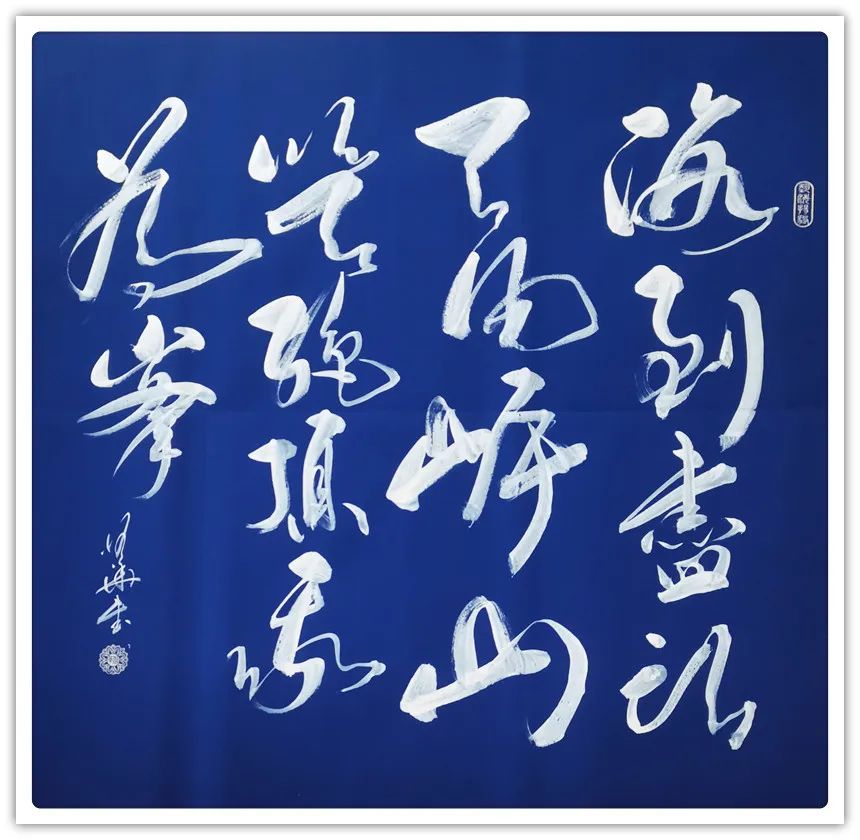 海到盡頭
天作岸山
登絕頂我
為峯
華書